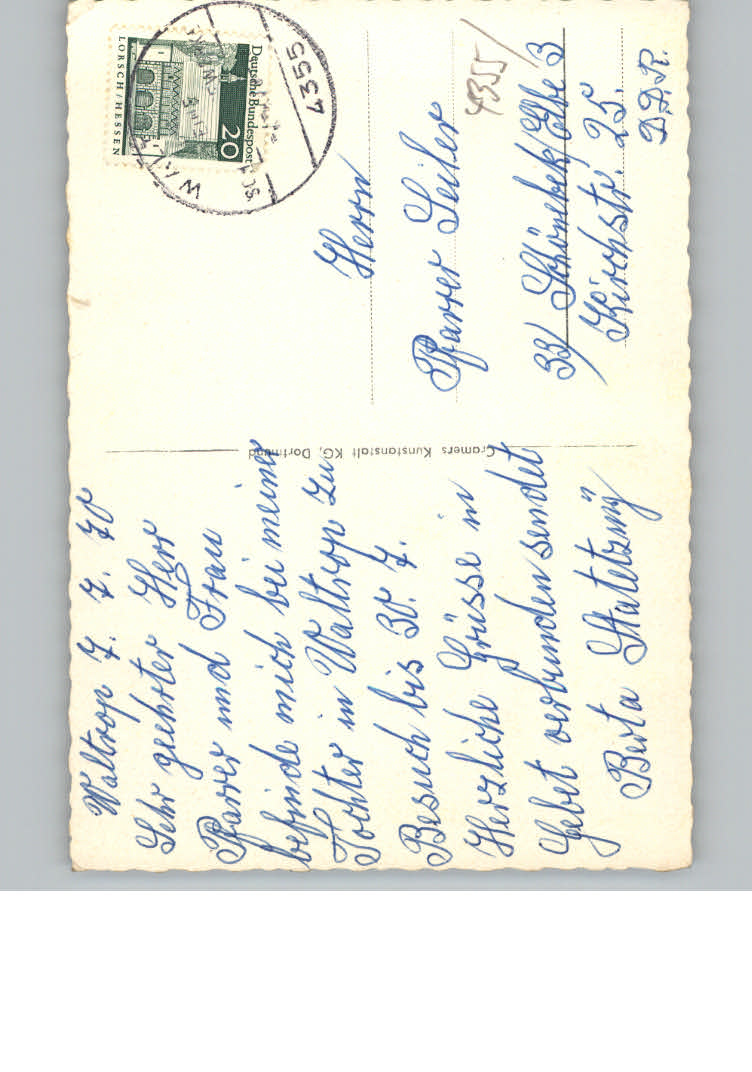 Waltrop 7. 7. 70
Sehr geehrter Herr
Pfarrer und Frau
befinde mich bei meiner
Tochter in Waltrop zu
Besuch bis 30. 7.
Herzliche Grüsse in
Gebet verbunden sendet
Berta
Cramers Kunstanstalt KG, Dortmund
Deutsche Bundespost
20
LORSCH/HESSEN
4355
4355/
Herrn
Pfarrer Seiler
33/ Schönebek/Elbe 3
Kirchstr. 25.
D.D.R.